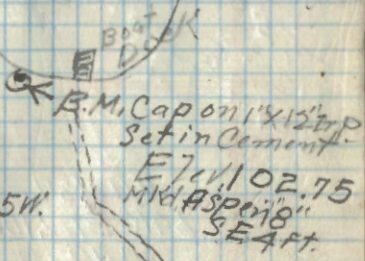 Boat
Dock
B.M. Cap on 1"X12" I.P.
Set in Cement
Elev. 102.75
Mkd Aspen 8"
SE 4 ft.
5W.